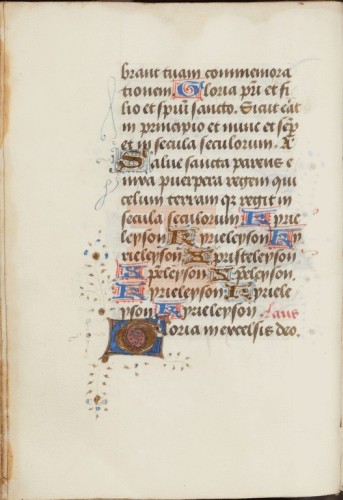 brant tuam commemora
tionem Gloria pri et fi
lio et spui sancto. Sicut erat
in principio et nunc et semp
et in secula seculorum. A
Salue sancta parens e
nixa puerpera regem qui
celum terram qz regit in
secula seculorum Kyrie
leyson Kyrieleyson Ky
rieleyson Xpristeleyson
Xpeleyson Xpeleyson
Kyrieleyson Kyriele
yson Kyrieleyson. Laus
Gloria in excelsis deo.